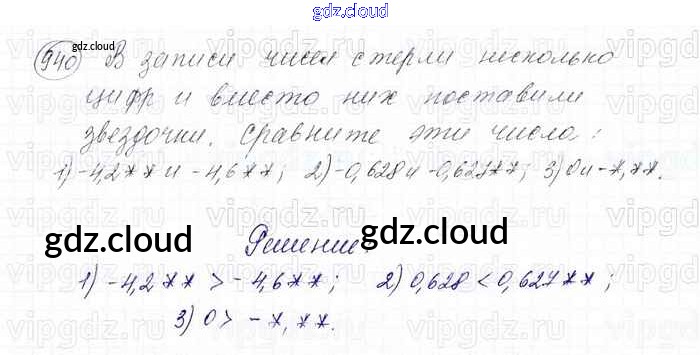 gdz.cloud
940 В записи чисел стерли несколько
цифр и вместо них поставили
звездочки. Сравните эти числа:
1) -4,2** и -4,6**; 2) -0,628 и -0,627**; 3) 0 и -*,**.
gdz.cloud gdz.cloud
Решение:
1) -4,2** > -4,6**; 2) 0,628 < 0,627**;
3) 0 > -*,**.